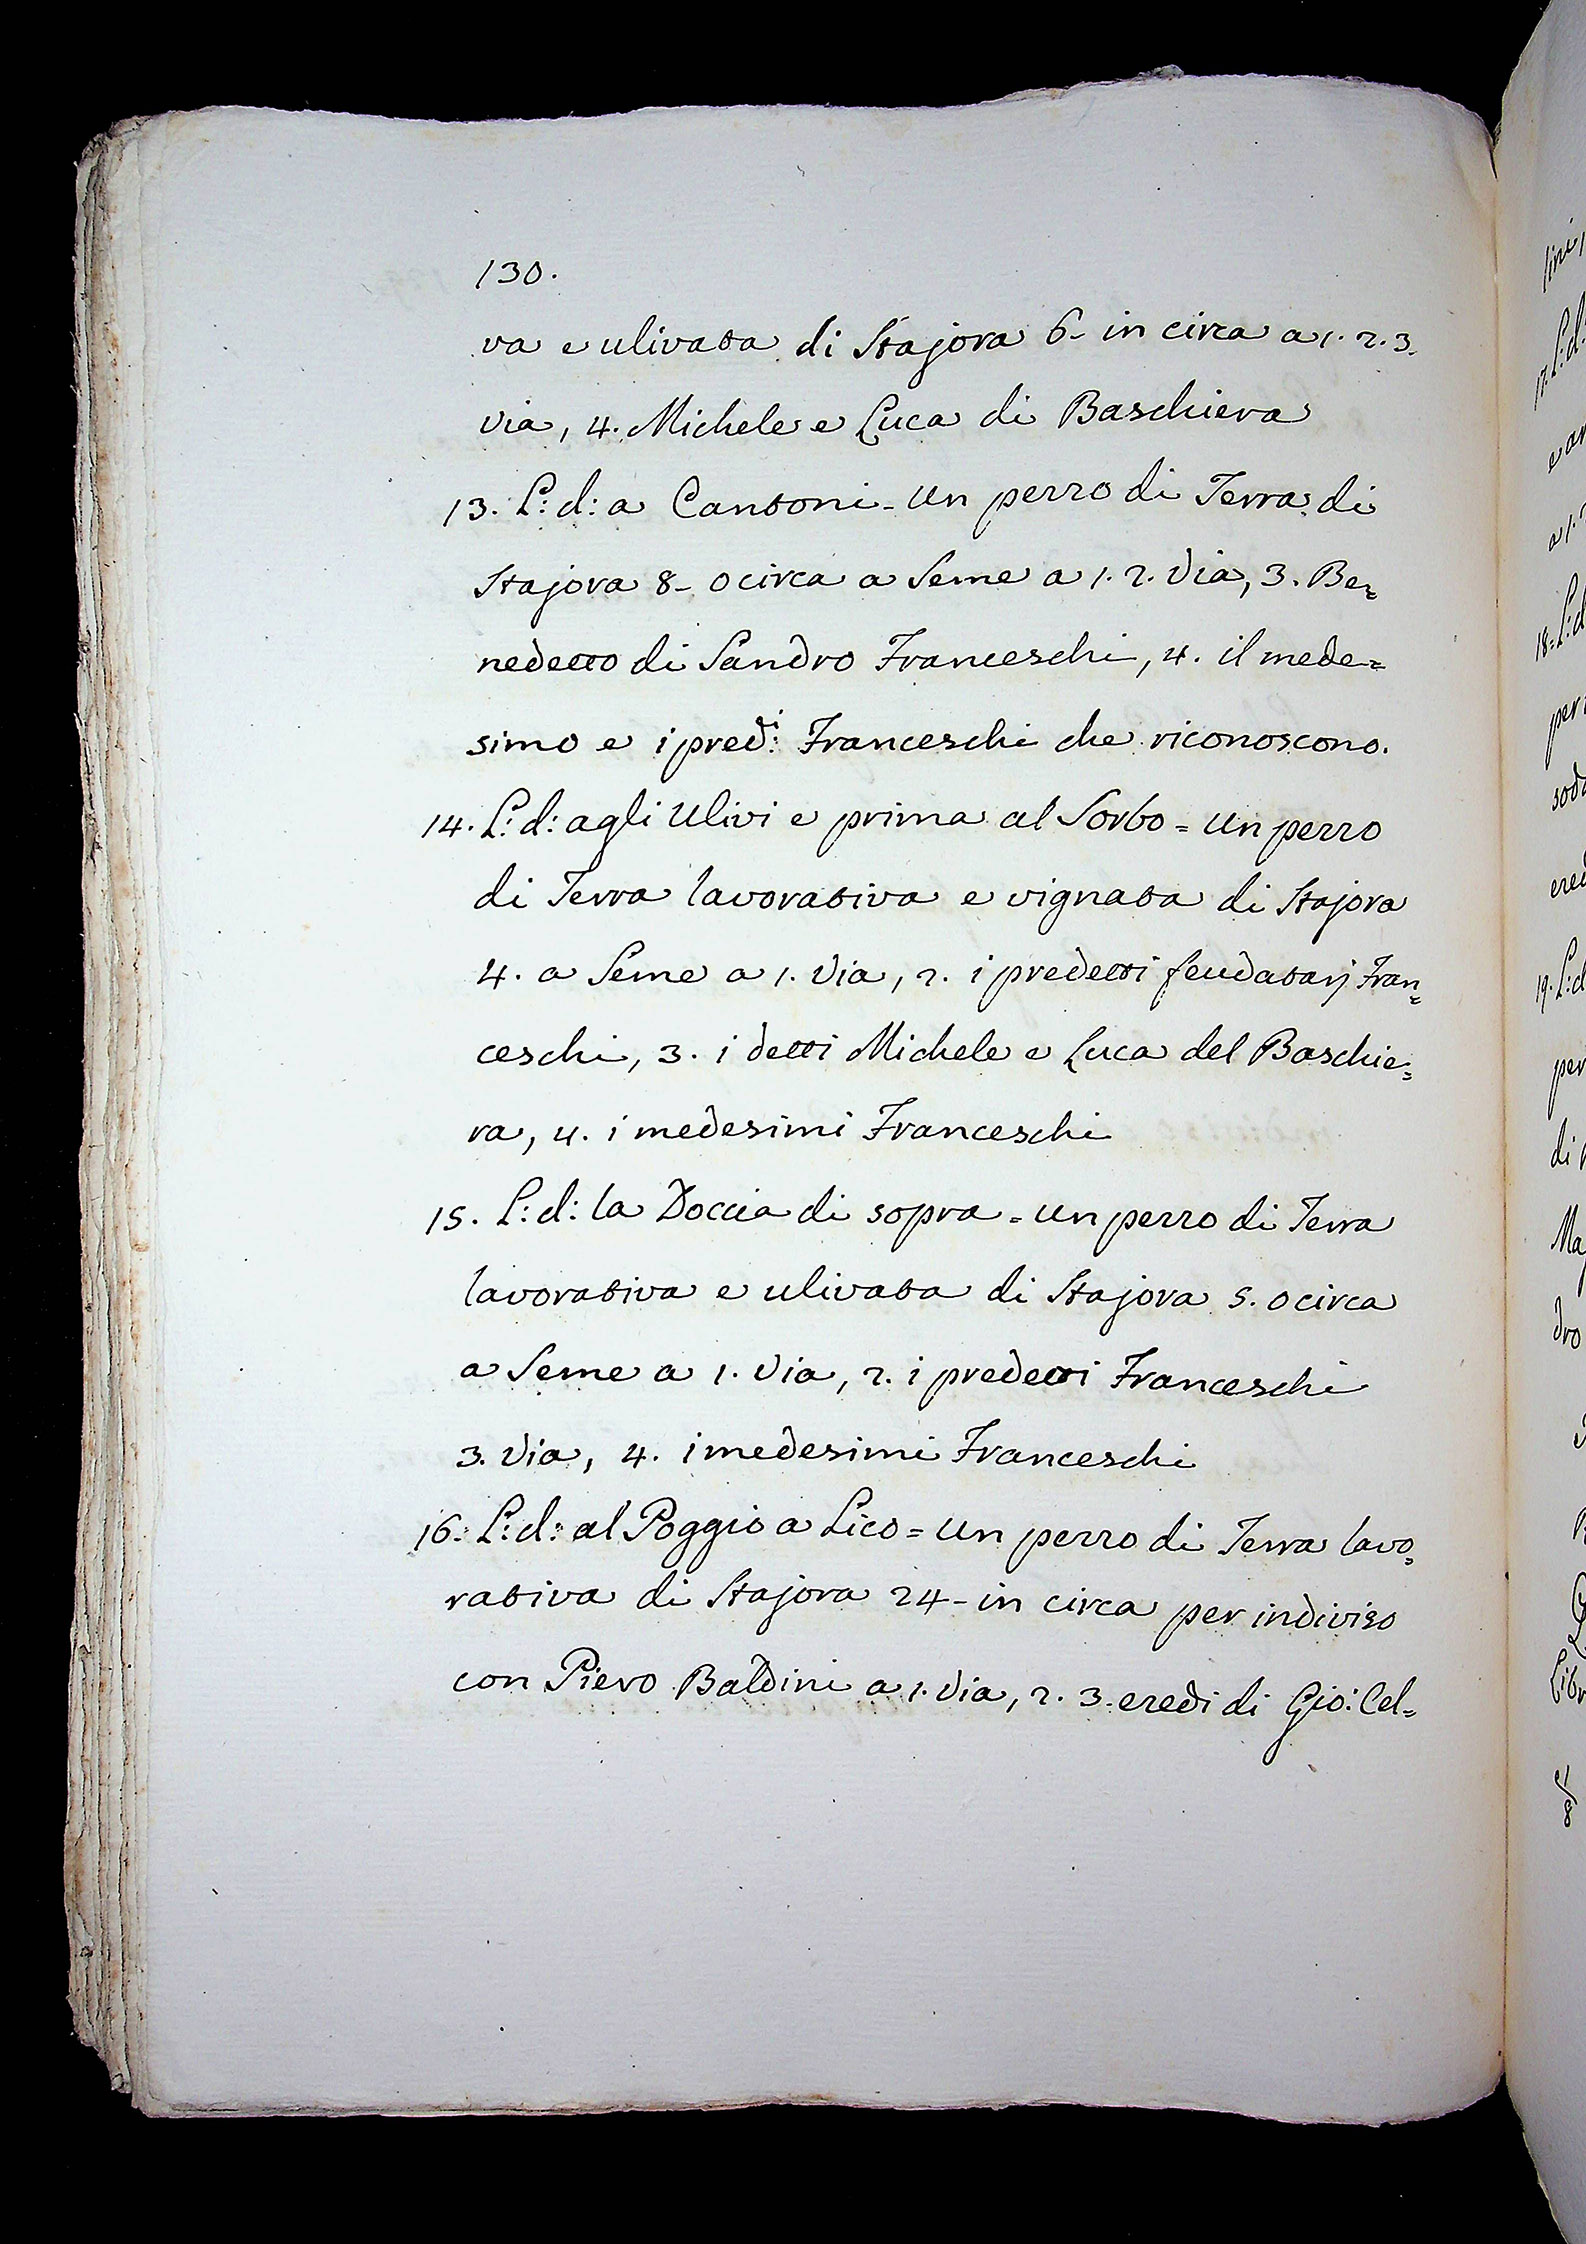 130.
va e ulivata di Stajora 6- in circa a 1. 2. 3.
via, 4. Michele e Luca di Baschiera
13. L: d: a Cantoni - un pezzo di Terra di
Stajora 8- o circa a Seme a 1. 2. Via, 3. Be=
nedetto di Sandro Franceschi, 4. il mede=
simo e i pred:i Franceschi che riconoscono.
14. L: d: agli Ulivi e prima al Sorbo = un pezzo
di Terra lavorativa e vignata di Stajora
4. a Seme a 1. Via, 2. i predetti feudatarj Fran=
ceschi, 3. i detti Michele e Luca del Baschie=
ra, 4. i medesimi Franceschi
15. L: d: la Doccia di sopra = un pezzo di Terra
lavorativa e ulivata di Stajora 5. o circa
a Seme a 1. Via, 2. i predetti Franceschi
3. Via, 4. i medesimi Franceschi
16. L: d: al Poggio a Lico = un pezzo di Terra lavo=
rativa di Stajora 24- in circa per indiviso
con Piero Baldini a 1. Via, 2. 3. eredi di Gio: Cel=
17. L: d:
18= L: d
per
19. L: d
per
di
dro